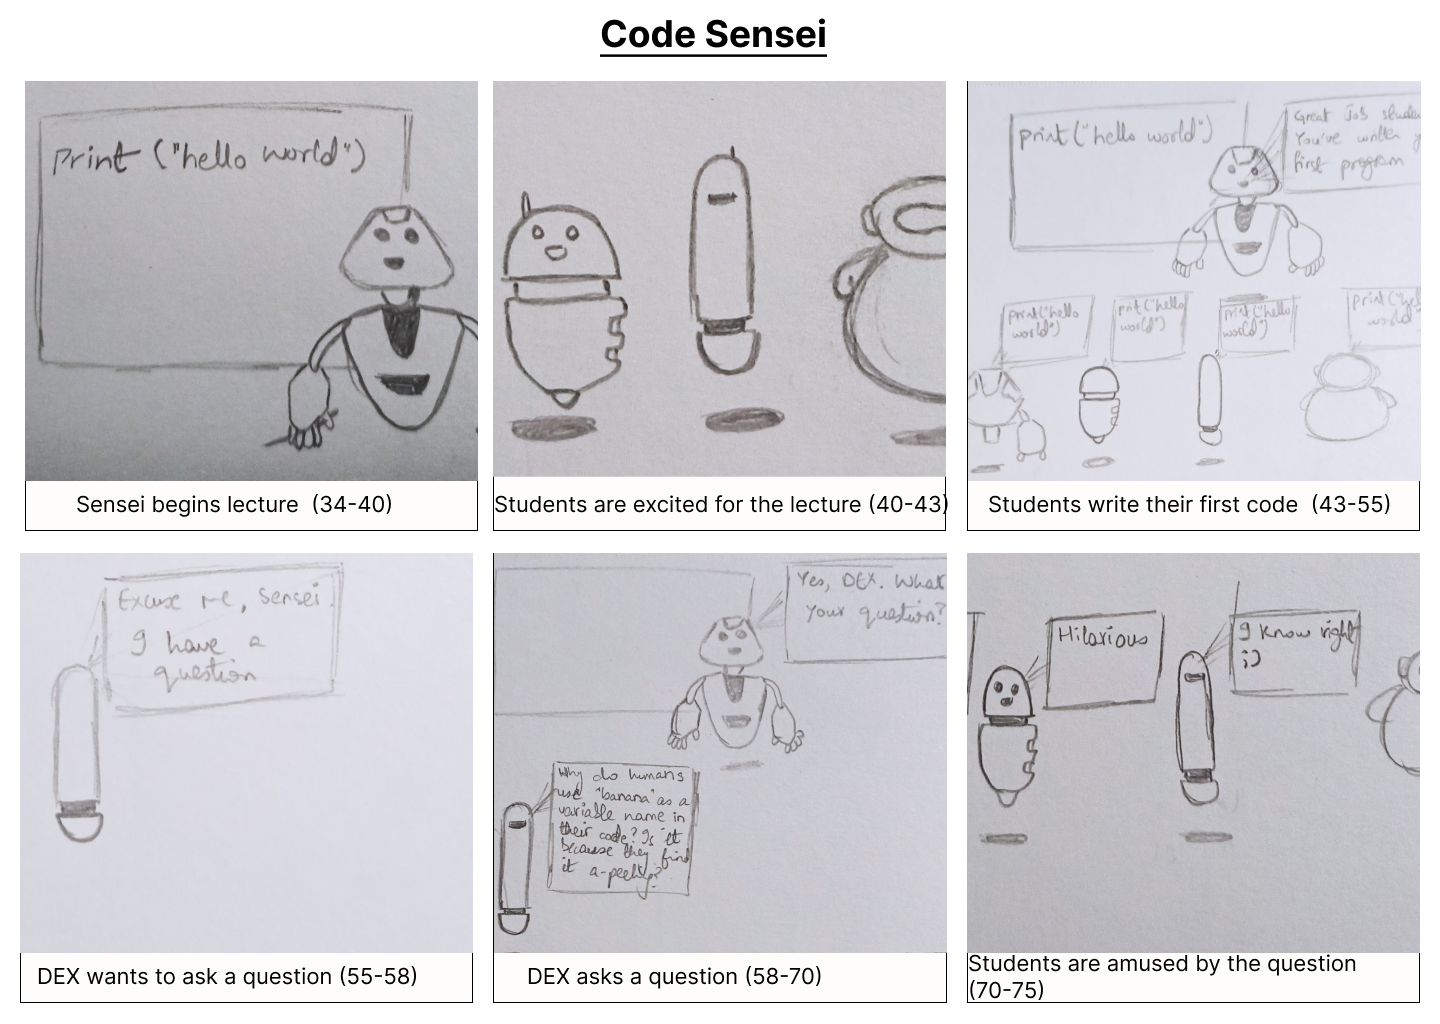 Code Sensei
Print ("hello world")
Sensei begins lecture (34-40)
Students are excited for the lecture (40-43)
print ("hello world")
Great Job
You've written
first program
print("hello
world")
print("hello
world")
print("hello
world")
print("hel
world"
Students write their first code (43-55)
Excuse me, Sensei.
I have a
question
DEX wants to ask a question (55-58)
Yes, DEX. What
your question?
Why do humans
use "banana" as a
variable name in
their code? Is it
because they find
it a-peeling?
DEX asks a question (58-70)
Hilarious
I know right
;)
Students are amused by the question
(70-75)